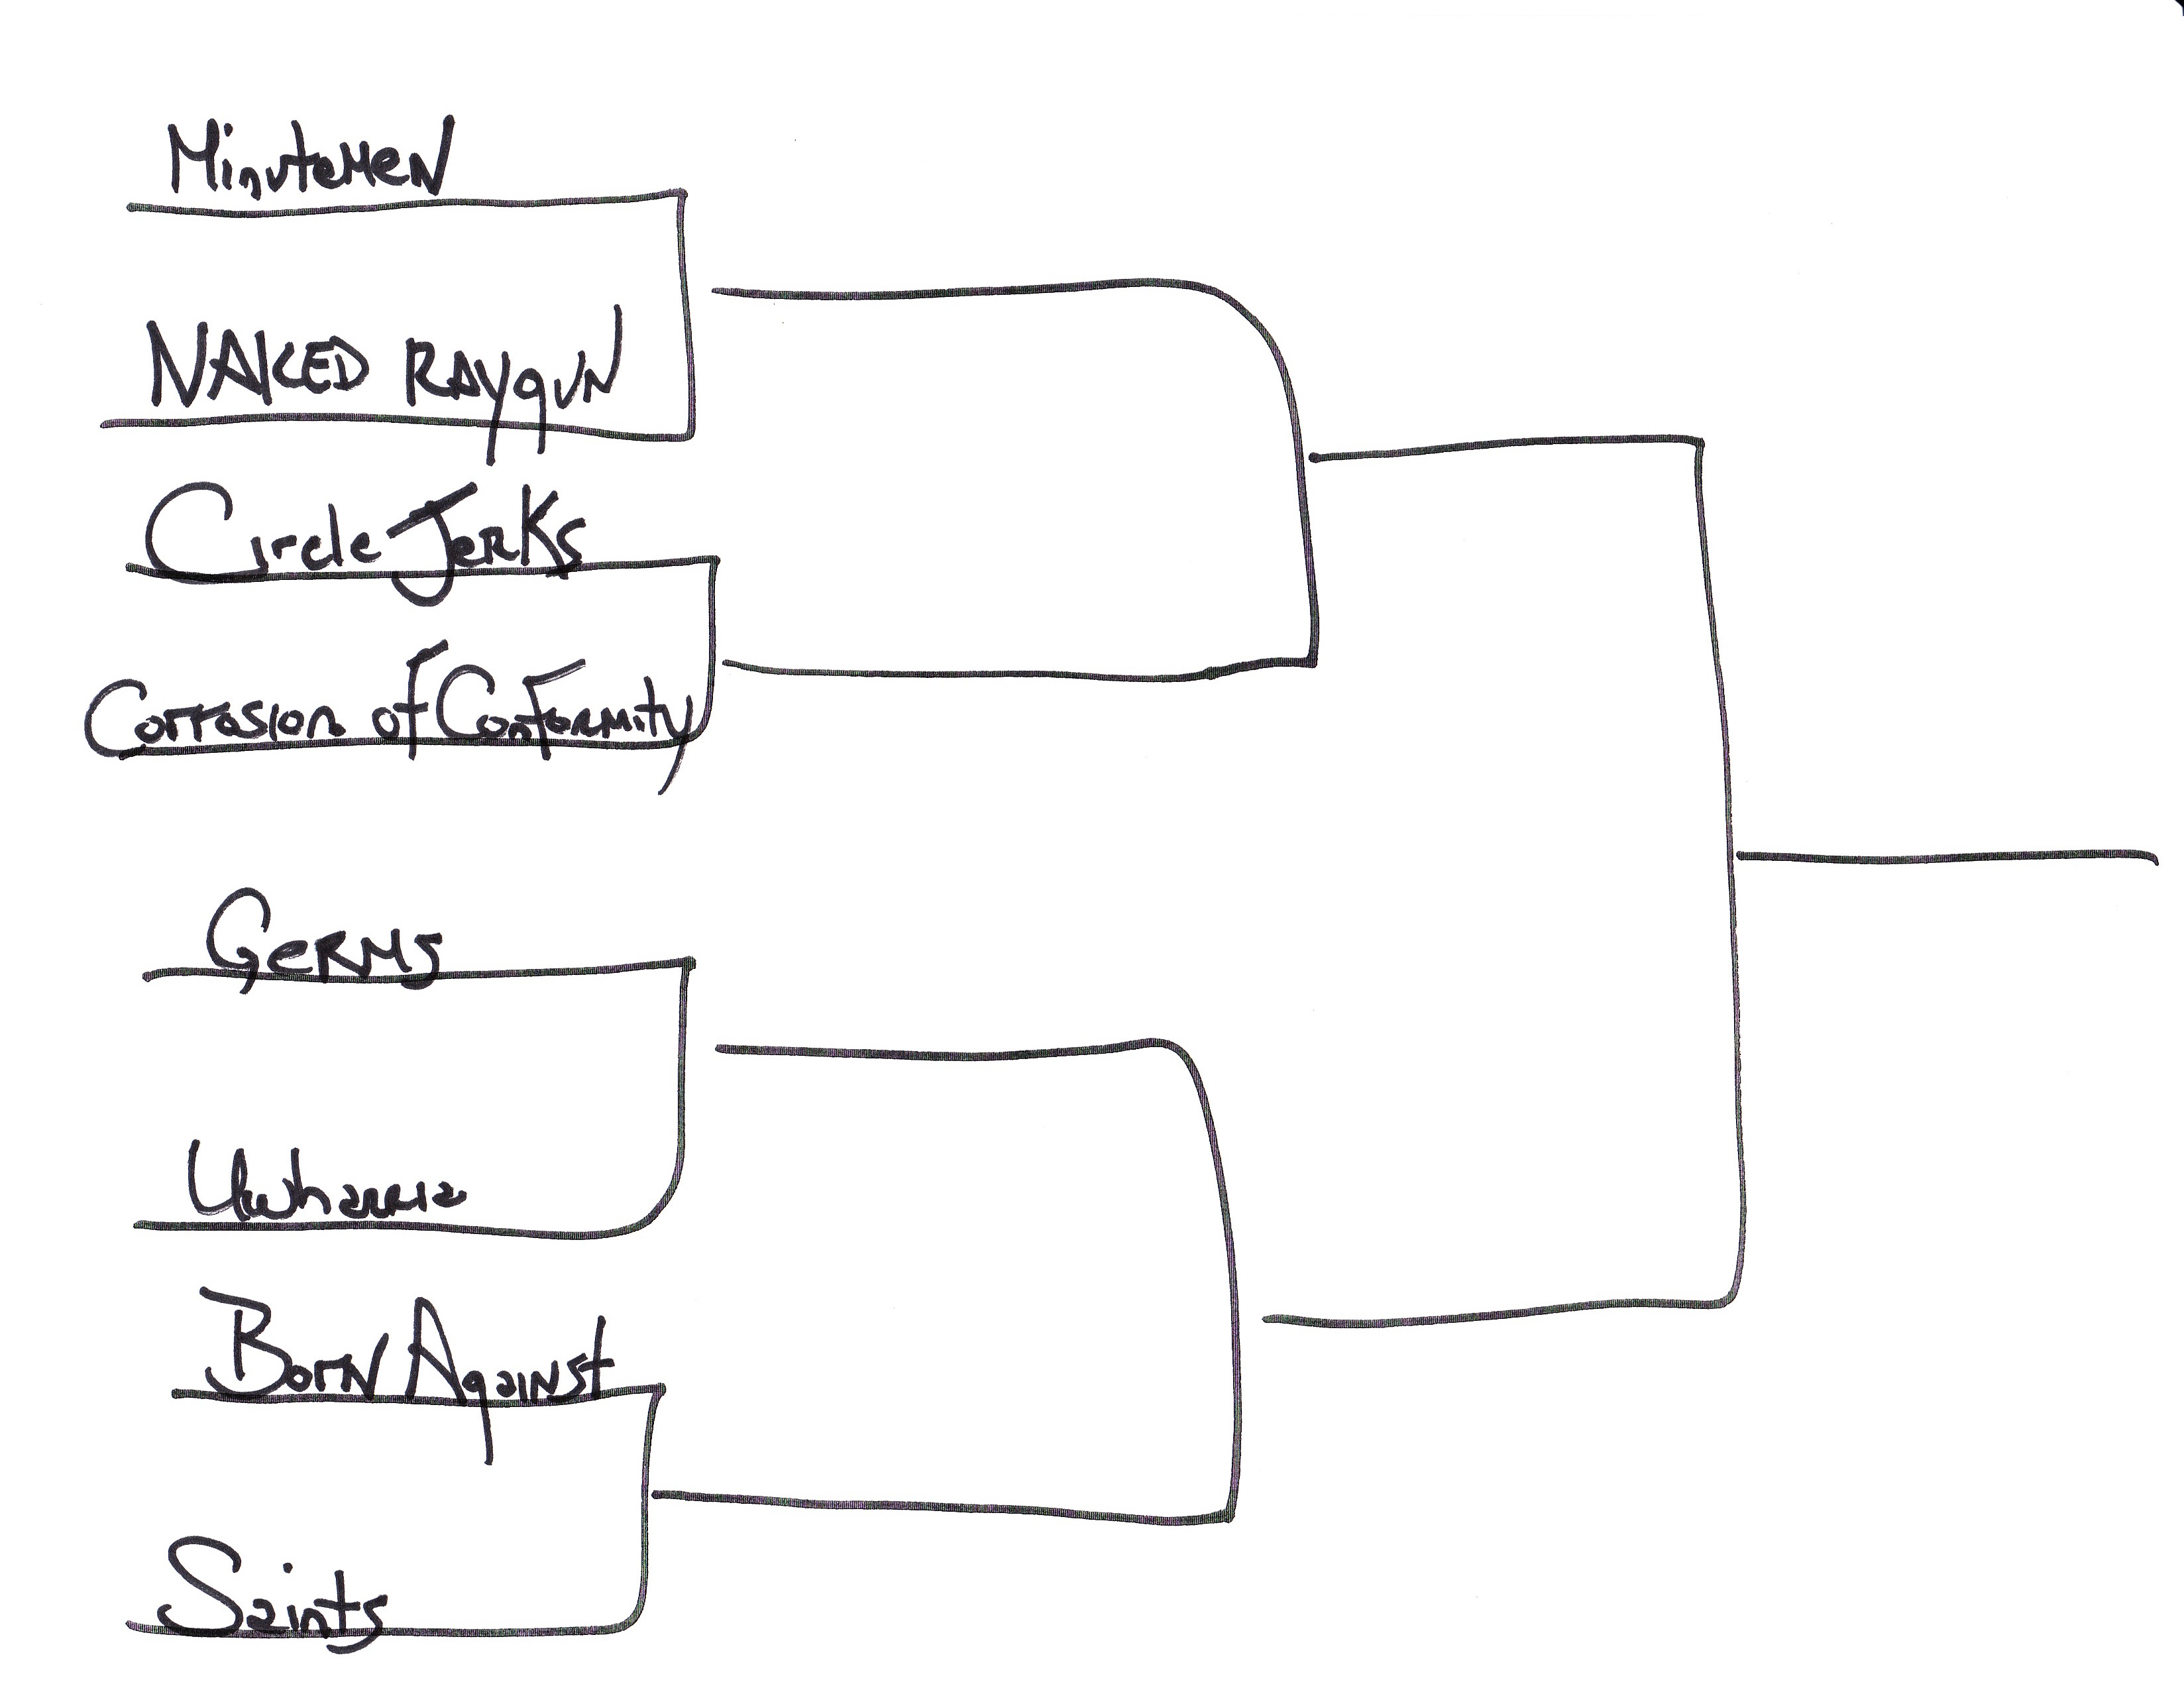 Minutemen
NAKED RAYgUN
Circle Jerks
Corrosion of Conformity
Germs
Uwharria
Born Against
Saints